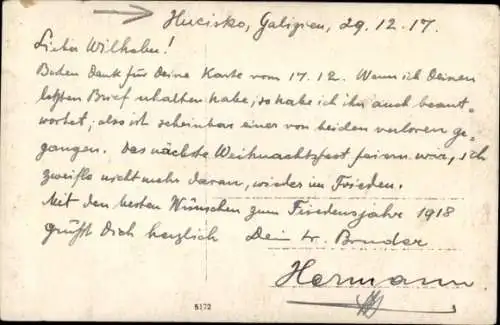 Hucisko, Galizien, 29.12.17.
Lieber Wilhelm!
Besten Dank für Deine Karte vom 17.12. Wenn ich Deinen
letzten Brief erhalten habe, so habe ich ihn auch beant-
wortet; also ist scheinbar einer von beiden verloren ge-
gangen. Das nächste Weihnachtsfest feiern wir, ich
zweifle nicht mehr daran, wieder im Frieden.
Mit den besten Wünschen zum Friedensjahr 1918
grüßt Dich herzlich Dein tr. Bruder
Hermann
5172